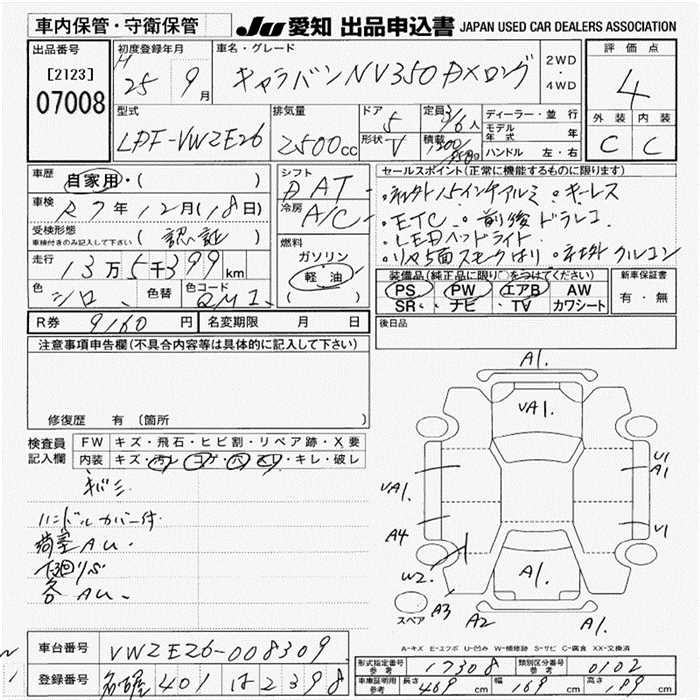 車内保管・守衛保管
JU 愛知 出品申込書 JAPAN USED CAR DEALERS ASSOCIATION
出品番号
[2123]
07008
初度登録年月
H 25年 9月
車名・グレード
キャラバンNV350 DXロング
2WD
・
4WD
評価点
4
外装 内装
C C
型式
LDF-VW2E26
排気量
2500cc
ドア
5
形状
V
定員
3/6人
積載
ディーラー・並行
モデル年式 年
ハンドル 左・右
車歴
自家用・( )
車検
R7年12月(18日)
受検形態
車検付きのみ記入して下さい
(認証)
走行
13万5千399km
色
シロ
色替
色コード
QM1
シフト
AT
冷房
A/C
燃料
ガソリン
軽油
セールスポイント(正常に機能するものに限ります)
・社外15インチアルミ ・キーレス
・ETC ・前後ドラレコ
・LEDヘッドライト
・リヤ5面スモークはり ・社外
装備品(純正品に限り○をつけてください)
PS PW エアB AW
SR ナビ TV カワシート
新車保証書
有・無
R券 9160円
名変期限 月 日
後日品
注意事項申告欄(不具合内容等は具体的に記入して下さい)
修復歴 有(箇所
検査員
記入欄
FW キズ・飛石・ヒビ割・リペア跡・X要
内装 キズ・汚レ・コゲ・穴・スレ・キレ・破レ
キバミ
ハンドルカバー付
荷室AU
下廻りS
各AU
A1.
VA1.
U1
A1
VA1.
A4
U1
W2.
A1.
スペア
A3
A2
A1.
A-キズ E-エクボ U-凹み W-補修跡 S-サビ C-腐食 XX-交換済
車台番号
VW2E26-008309
登録番号
名古屋 401 は 2398
形式指定番号
参考
17308
類別区分番号
参考
0102
車庫証明用
参考
長さ 469cm 幅 169cm 高さ 199cm